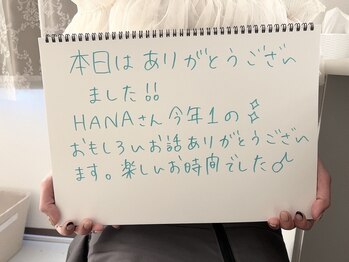 本日は ありがとうござい
ました!!
HANAさん今年1の
おもしろいお話ありがとうござい
ます。楽しいお時間でした